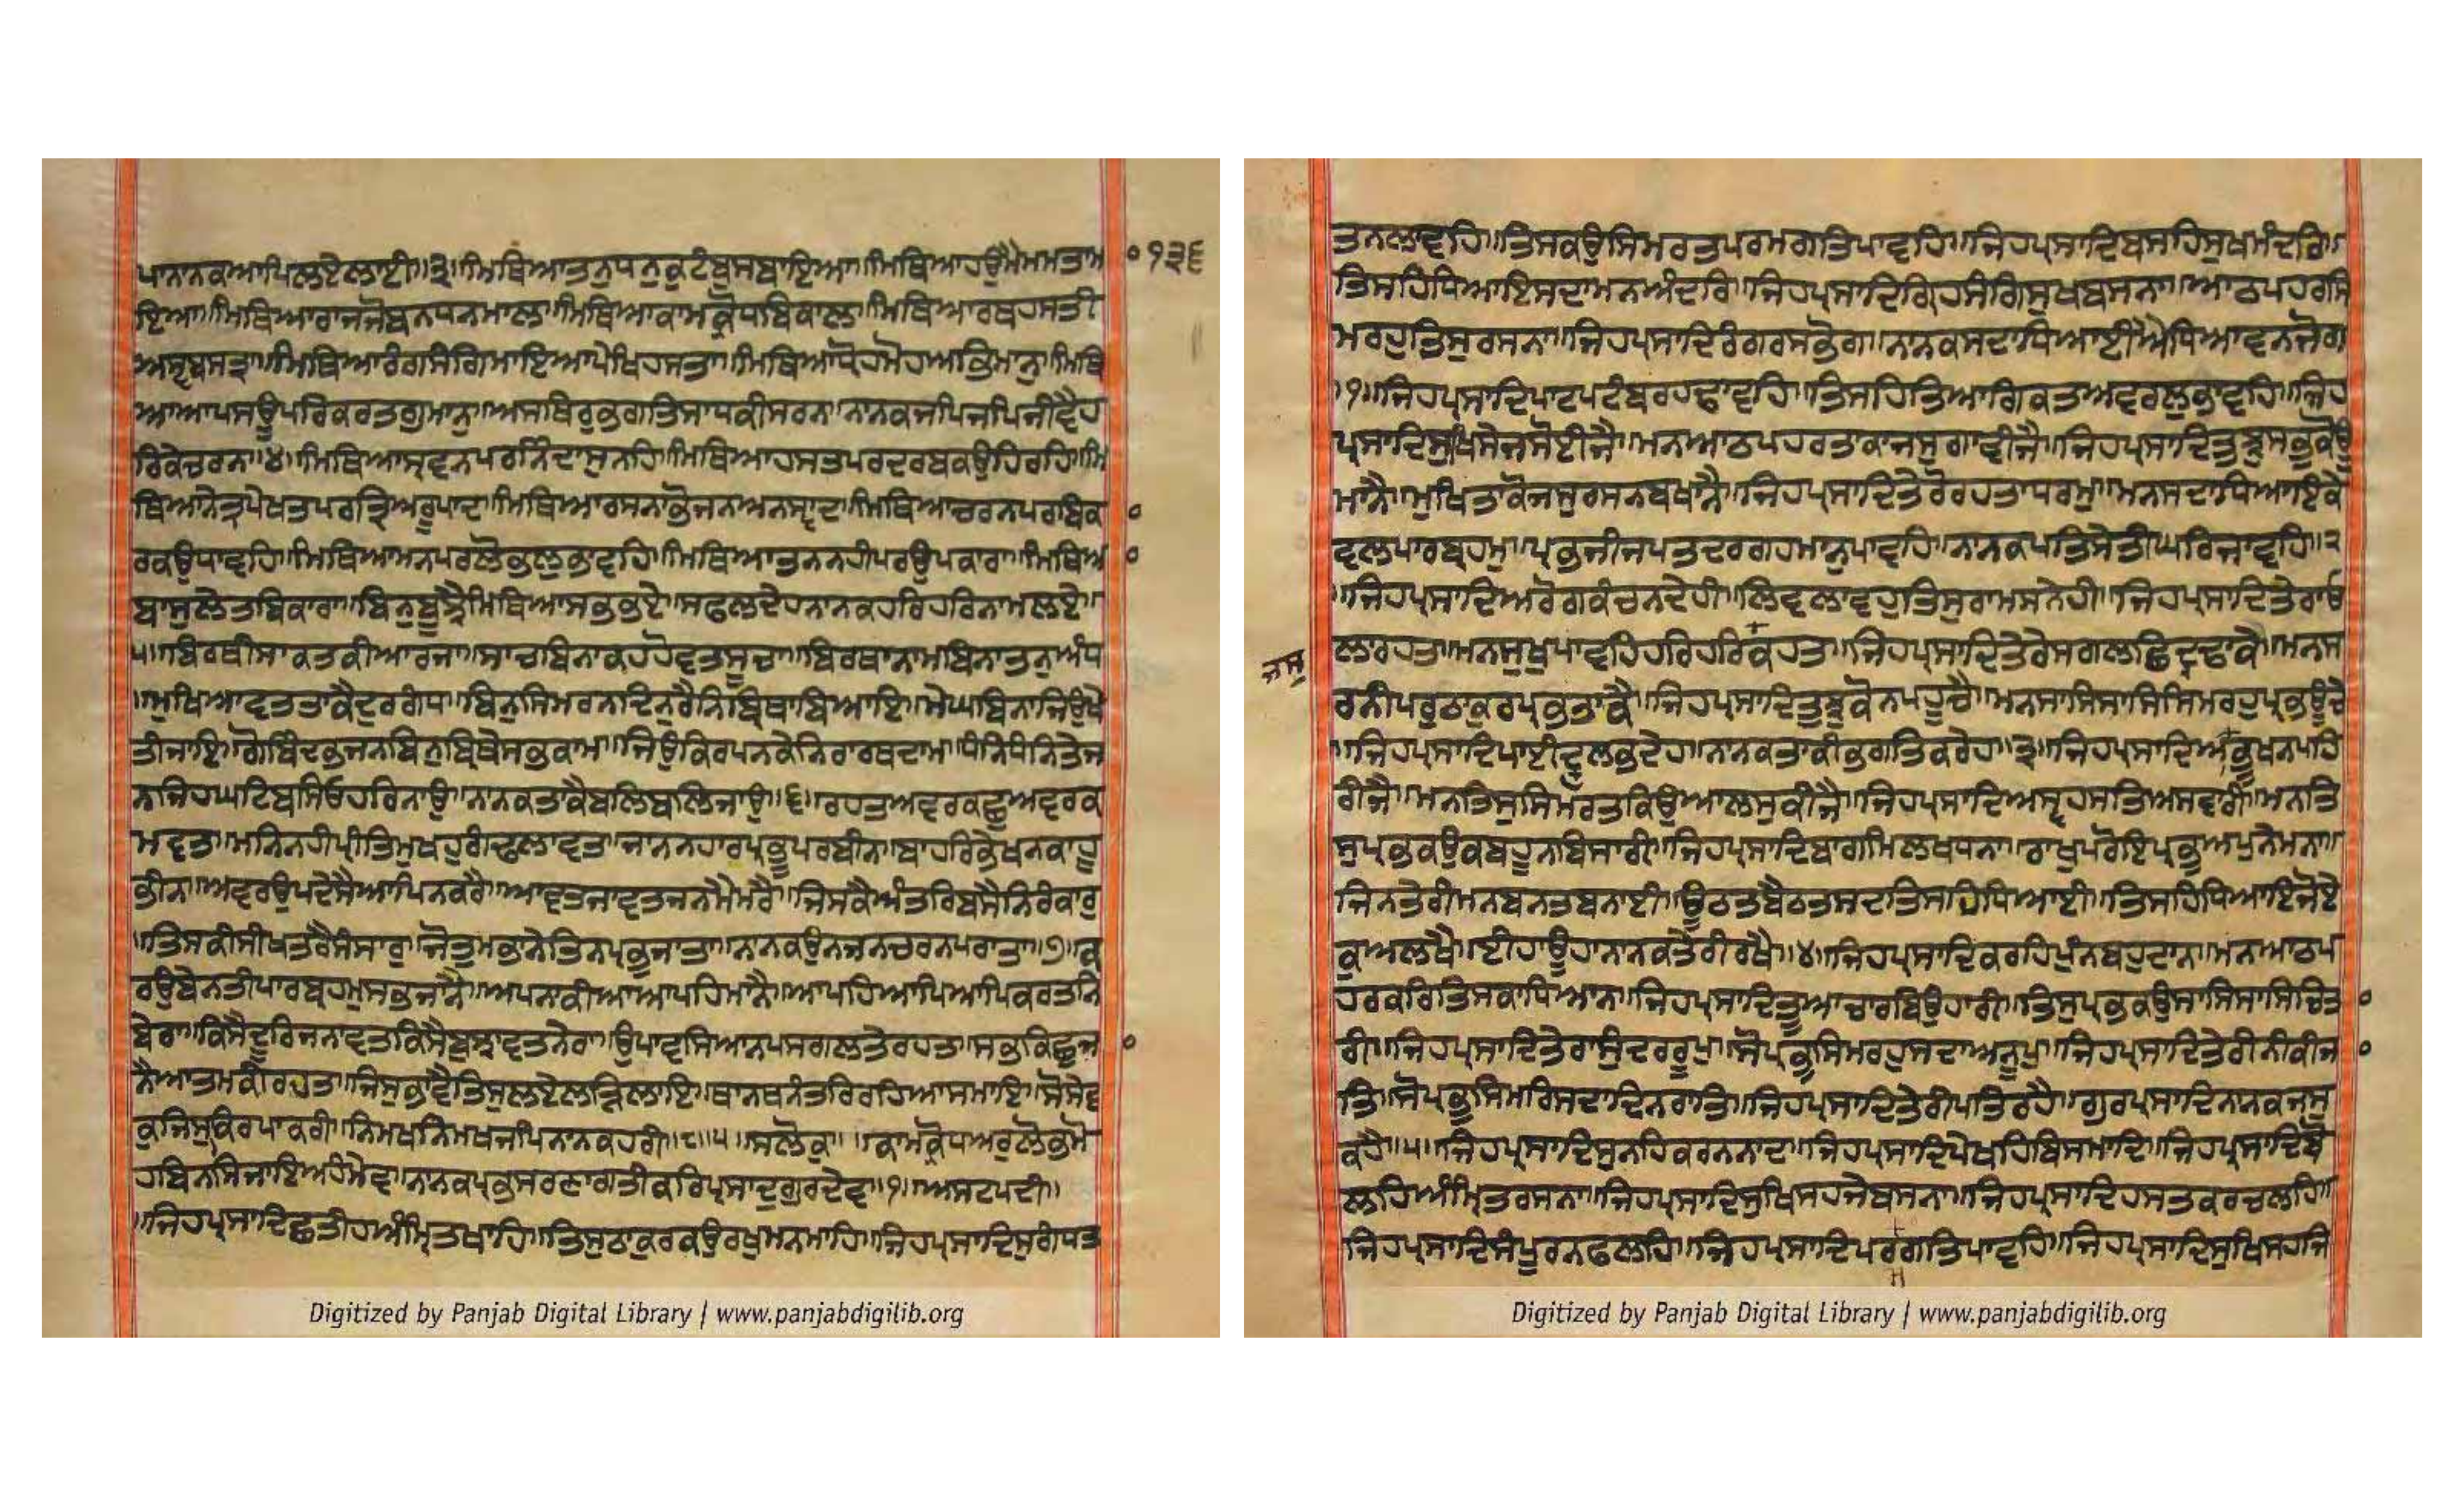 ਪਾਨਾਨਕਆਪਿਲਏਲਾਈ॥੩॥ਮਿਥਿਆਤਨੁਧਨੁਕੁਟੰਬੁਸਬਾਇਆ॥ਮਿਥਿਆਹਉਮੈਮਮਤਾਮਾ
੧੩੬
ਇਆ॥ਮਿਥਿਆਰਾਜਜੋਬਨਧਨਮਾਲ॥ਮਿਥਿਆਕਾਮਕ੍ਰੋਧਬਿਕਾਲ॥ਮਿਥਿਆਰਥਹਸਤੀ
ਅਸ੍ਵਬਸਤ੍ਰਾ॥ਮਿਥਿਆਰੰਗਸੰਗਿਮਾਇਆਪੇਖਿਹਸਤਾ॥ਮਿਥਿਆਧੋਹਮੋਹਅਭਿਮਾਨੁ॥ਮਿਥਿ
ਆਆਪਸਊਪਰਿਕਰਤਗੁਮਾਨੁ॥ਅਸਥਿਰੁਭਗਤਿਸਾਧਕੀਸਰਨ॥ਨਾਨਕਜਪਿਜਪਿਜੀਵੈਹ
ਰਿਕੇਚਰਨ॥੪॥ਮਿਥਿਆਸ੍ਰਵਨਪਰਨਿੰਦਾਸੁਨਹਿ॥ਮਿਥਿਆਹਸਤਪਰਦਰਬਕਉਹਿਰਹਿ॥ਮਿ
ਥਿਆਨੇਤ੍ਰਪੇਖਤਪਰਤ੍ਰਿਅਰੂਪਾਦ॥ਮਿਥਿਆਰਸਨਾਭੋਜਨਅਨਸ੍ਵਾਦ॥ਮਿਥਿਆਚਰਨਪਰਬਿਕਾ
ਰਕਉਧਾਵਹਿ॥ਮਿਥਿਆਮਨਪਰਲੋਭਲੁਭਾਵਹਿ॥ਮਿਥਿਆਤਨਨਹੀਪਰਉਪਕਾਰਾ॥ਮਿਥਿਆ
ਬਾਸੁਲੇਤਬਿਕਾਰਾ॥ਬਿਨੁਬੂਝੈਮਿਥਿਆਸਭਭਏ॥ਸਫਲਦੇਹਨਾਨਕਹਰਿਹਰਿਨਾਮਲਏ॥
੫॥ਬਿਰਥੀਸਾਕਤਕੀਆਰਜਾ॥ਸਾਚਬਿਨਾਕਹਹੋਵਤਸੂਚਾ॥ਬਿਰਥਾਨਾਮਬਿਨਾਤਨੁਅੰਧ
॥ਮੁਖਿਆਵਤਤਾਕੈਦੁਰਗੰਧ॥ਬਿਨੁਸਿਮਰਨਦਿਨੁਰੈਨਿਬ੍ਰਿਥਾਬਿਆਇ॥ਮੇਘਬਿਨਾਜਿਉਖੇ
ਤੀਜਾਇ॥ਗੋਬਿੰਦਭਜਨਬਿਨੁਬ੍ਰਿਥੇਸਭਕਾਮ॥ਜਿਉਕਿਰਪਨਕੇਨਿਰਾਰਥਦਾਮ॥ਧੰਨਿਧੰਨਿਤੇਜ
ਨਜਿਹਘਟਿਬਸਿਓਹਰਿਨਾਉ॥ਨਾਨਕਤਾਕੈਬਲਿਬਲਿਜਾਉ॥੬॥ਰਹਤਅਵਰਕਛੁਅਵਰਕ
ਮਾਵਤ॥ਮਨਿਨਹੀਪ੍ਰੀਤਿਮੁਖਹੁਗੰਢਲਾਵਤ॥ਜਾਨਨਹਾਰਪ੍ਰਭੂਪਰਬੀਨ॥ਬਾਹਰਿਭੇਖਨਕਾਹੂ
ਭੀਨ॥ਅਵਰਉਪਦੇਸੈਆਪਿਨਕਰੈ॥ਆਵਤਜਾਵਤਜਨਮੈਮਰੈ॥ਜਿਸਕੈਅੰਤਰਿਬਸੈਨਿਰੰਕਾਰੁ
॥ਤਿਸਕੀਸੀਖਤਰੈਸੰਸਾਰੁ॥ਜੋਤੁਮਭਾਨੇਤਿਨਪ੍ਰਭੁਜਾਤਾ॥ਨਾਨਕਉਨਜਨਚਰਨਪਰਾਤਾ॥੭॥ਕ
ਰਉਬੇਨਤੀਪਾਰਬ੍ਰਹਮੁਸਭਜਾਨੈ॥ਅਪਨਾਕੀਆਆਪਹਿਮਾਨੈ॥ਆਪਹਿਆਪਿਆਪਿਕਰਤਨਿ
ਬੇਰਾ॥ਕਿਸੈਦੂਰਿਜਨਾਵਤਕਿਸੈਬੁਝਾਵਤਨੇਰਾ॥ਉਪਾਵਸਿਆਨਪਸਗਲਤੇਰਹਤਾ॥ਸਭੁਕਿਛੁਜਾ
ਨੈਆਤਮਕੀਰਹਤਾ॥ਜਿਸੁਭਾਵੈਤਿਸੁਲਏਲੜਿਲਾਇ॥ਥਾਨਥਨੰਤਰਿਰਹਿਆਸਮਾਇ॥ਸੋਸੇਵ
ਕੁਜਿਸੁਕਿਰਪਾਕਰੀ॥ਨਿਮਖਨਿਮਖਜਪਿਨਾਨਕਹਰੀ॥੮॥੫॥ਸਲੋਕੁ॥ਕਾਮਕ੍ਰੋਧਅਰੁਲੋਭਮੋ
ਹਬਿਨਸਿਜਾਇਅਹੰਮੇਵ॥ਨਾਨਕਪ੍ਰਭਸਰਣਾਗਤੀਕਰਿਪ੍ਰਸਾਦੁਗੁਰਦੇਵ॥੧॥ਅਸਟਪਦੀ॥
॥ਜਿਹਪ੍ਰਸਾਦਿਛਤੀਹਅੰਮ੍ਰਿਤਖਾਹਿ॥ਤਿਸੁਠਾਕੁਰਕਉਰਖੁਮਨਮਾਹਿ॥ਜਿਹਪ੍ਰਸਾਦਿਸੁਗੰਧਤ
Digitized by Panjab Digital Library | www.panjabdigilib.org
ਤਨਲਾਵਹਿ॥ਤਿਸਕਉਸਿਮਰਤਪਰਮਗਤਿਪਾਵਹਿ॥ਜਿਹਪ੍ਰਸਾਦਿਬਸਹਿਸੁਖਮੰਦਰਿ॥
ਤਿਸਹਿਧਿਆਇਸਦਾਮਨਅੰਦਰਿ॥ਜਿਹਪ੍ਰਸਾਦਿਗ੍ਰਿਹਸੰਗਿਸੁਖਬਸਨਾ॥ਆਠਪਹਰਸਿ
ਮਰਹੁਤਿਸੁਰਸਨਾ॥ਜਿਹਪ੍ਰਸਾਦਿਰੰਗਰਸਭੋਗ॥ਨਾਨਕਸਦਾਧਿਆਈਐਧਿਆਵਨਜੋਗ
॥੧॥ਜਿਹਪ੍ਰਸਾਦਿਪਾਟਪਟੰਬਰਹਢਾਵਹਿ॥ਤਿਸਹਿਤਿਆਗਿਕਤਅਵਰਲੁਭਾਵਹਿ॥ਜਿਹ
ਪ੍ਰਸਾਦਿਸੁਖਿਸੇਜਸੋਈਜੈ॥ਮਨਆਠਪਹਰਤਾਕਾਜਸੁਗਾਵੀਜੈ॥ਜਿਹਪ੍ਰਸਾਦਿਤੁਝੁਸਭੁਕੋਊ
ਮਾਨੈ॥ਮੁਖਿਤਾਕੋਜਸੁਰਸਨਬਖਾਨੈ॥ਜਿਹਪ੍ਰਸਾਦਿਤੇਰੋਰਹਤਾਧਰਮੁ॥ਮਨਸਦਾਧਿਆਇਕੇ
ਵਲਪਾਰਬ੍ਰਹਮੁ॥ਪ੍ਰਭਜੀਜਪਤਦਰਗਹਮਾਨੁਪਾਵਹਿ॥ਨਾਨਕਪਤਿਸੇਤੀਘਰਿਜਾਵਹਿ॥੨
॥ਜਿਹਪ੍ਰਸਾਦਿਅਰੋਗਕੰਚਨਦੇਹੀ॥ਲਿਵਲਾਵਹੁਤਿਸੁਰਾਮਸਨੇਹੀ॥ਜਿਹਪ੍ਰਸਾਦਿਤੇਰਾਓ
ਲਾਰਹਤ॥ਮਨਸੁਖੁਪਾਵਹਿਹਰਿਹਰਿਕਹਤ॥ਜਿਹਪ੍ਰਸਾਦਿਤੇਰੇਸਗਲਛਿਦ੍ਰਢਾਕੇ॥ਮਨਸ
ਜਸੁ
ਰਨੀਪਰੁਠਾਕੁਰਪ੍ਰਭਤਾਕੈ॥ਜਿਹਪ੍ਰਸਾਦਿਤੁਝੁਕੋਨਪਹੂਚੈ॥ਮਨਸਾਸਿਸਾਸਿਸਿਮਰਹੁਪ੍ਰਭਊਚੇ
॥ਜਿਹਪ੍ਰਸਾਦਿਪਾਈਦ੍ਰੁਲਭਦੇਹ॥ਨਾਨਕਤਾਕੀਭਗਤਿਕਰੇਹ॥੩॥ਜਿਹਪ੍ਰਸਾਦਿਆਭੂਖਨਪਹਿ
ਰੀਜੈ॥ਮਨਤਿਸੁਸਿਮਰਤਕਿਉਆਲਸੁਕੀਜੈ॥ਜਿਹਪ੍ਰਸਾਦਿਅਸ੍ਵਹਸਤਿਅਸਵਾਰੀ॥ਮਨਤਿ
ਸੁਪ੍ਰਭਕਉਕਬਹੂਨਬਿਸਾਰੀ॥ਜਿਹਪ੍ਰਸਾਦਿਬਾਗਮਿਲਖਧਨਾ॥ਰਾਖੁਪਰੋਇਪ੍ਰਭੁਅਪੁਨੇਮਨਾ॥
ਜਿਨਤੇਰੀਮਨਬਨਤਬਨਾਈ॥ਊਠਤਬੈਠਤਸਦਤਿਸਹਿਧਿਆਈ॥ਤਿਸਹਿਧਿਆਇਜੋਏ
ਕੁਅਲਖੈ॥ਈਹਾਊਹਾਨਾਨਕਤੇਰੀਰਖੈ॥੪॥ਜਿਹਪ੍ਰਸਾਦਿਕਰਹਿਪੁੰਨਬਹੁਦਾਨ॥ਮਨਆਠਪ
ਹਰਕਰਿਤਿਸਕਾਧਿਆਨ॥ਜਿਹਪ੍ਰਸਾਦਿਤੂਆਚਾਰਬਿਉਹਾਰੀ॥ਤਿਸੁਪ੍ਰਭਕਉਸਾਸਿਸਾਸਿਚਿਤਾ
ਰੀ॥ਜਿਹਪ੍ਰਸਾਦਿਤੇਰਾਸੁੰਦਰਰੂਪੁ॥ਸੋਪ੍ਰਭੁਸਿਮਰਹੁਸਦਾਅਨੂਪੁ॥ਜਿਹਪ੍ਰਸਾਦਿਤੇਰੀਨੀਕੀਜਾ
ਤਿ॥ਸੋਪ੍ਰਭੁਸਿਮਰਿਸਦਾਦਿਨਰਾਤਿ॥ਜਿਹਪ੍ਰਸਾਦਿਤੇਰੀਪਤਿਰਹੈ॥ਗੁਰਪ੍ਰਸਾਦਿਨਾਨਕਜਸੁ
ਕਹੈ॥੫॥ਜਿਹਪ੍ਰਸਾਦਿਸੁਨਹਿਕਰਨਨਾਦ॥ਜਿਹਪ੍ਰਸਾਦਿਪੇਖਹਿਬਿਸਮਾਦ॥ਜਿਹਪ੍ਰਸਾਦਿਬੋ
ਲਹਿਅੰਮ੍ਰਿਤਰਸਨਾ॥ਜਿਹਪ੍ਰਸਾਦਿਸੁਖਿਸਹਜੇਬਸਨਾ॥ਜਿਹਪ੍ਰਸਾਦਿਹਸਤਕਰਚਲਹਿ॥
ਜਿਹਪ੍ਰਸਾਦਿਸੰਪੂਰਨਫਲਹਿ॥ਜਿਹਪ੍ਰਸਾਦਿਪਰਗਤਿਪਾਵਹਿ॥ਜਿਹਪ੍ਰਸਾਦਿਸੁਖਿਸਹਜਿ
ਮ
Digitized by Panjab Digital Library | www.panjabdigilib.org